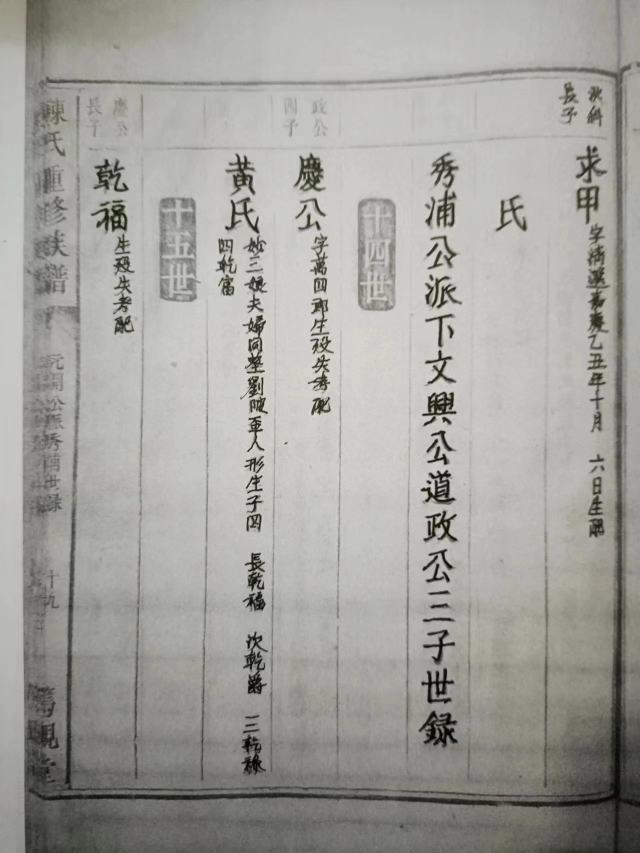 長子
求甲 字滿選嘉慶乙丑年十月 六日生配
氏
秀浦公派下文興公道政公三子世録
十四世
政公
四子
慶公 字萬四郎生殁失考配
黃氏 妙三娘夫婦同塋劉陂車人形生子四 長乾福 次乾爵 三乾祿
四乾富
十五世
慶公
長子
乾福 生殁失考配
陳氏重修族譜
元開公派秀浦世録
十九
篤親堂